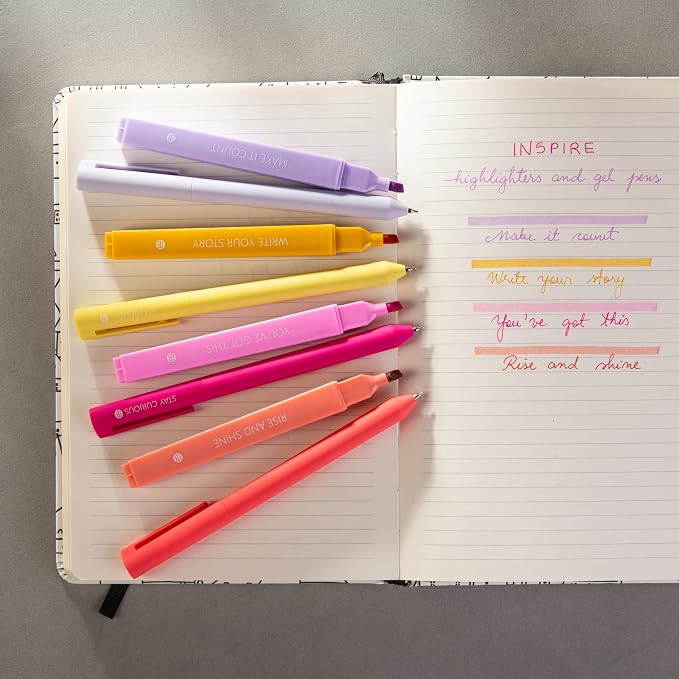 MAKE IT COUNT
WRITE YOUR STORY
YOU'VE GOT THIS
STAY CURIOUS
RISE AND SHINE
INSPIRE
highlighters and gel pens
Make it count
Write your story
You've got this
Rise and shine